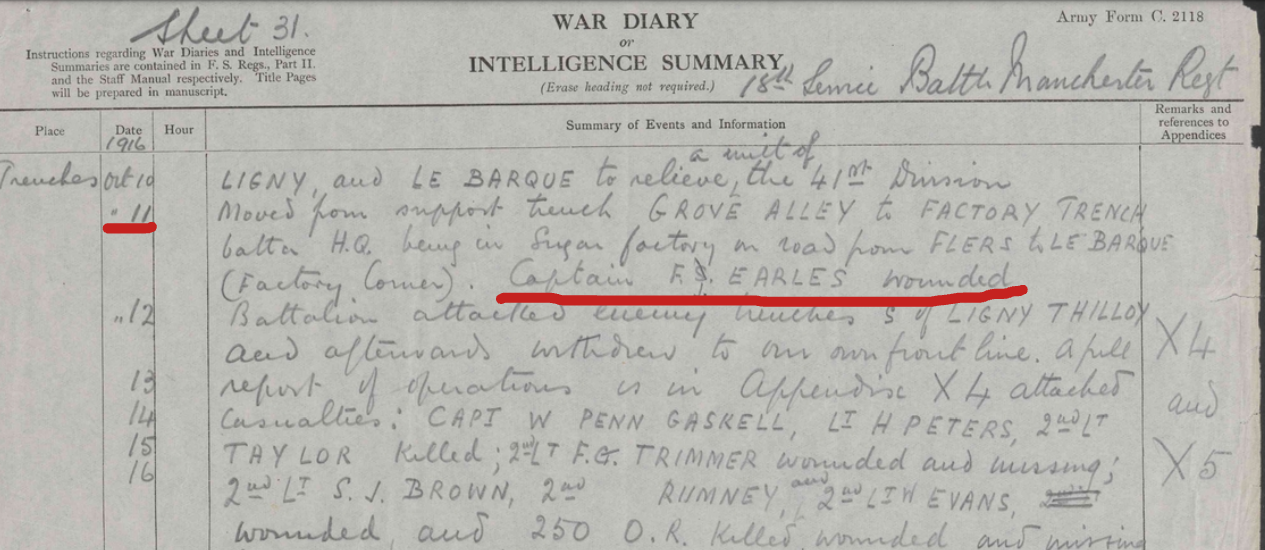 Sheet 31.
WAR DIARY
or
INTELLIGENCE SUMMARY.
(Erase heading not required.)
Army Form C. 2118
Instructions regarding War Diaries and Intelligence
Summaries are contained in F. S. Regs., Part II.
and the Staff Manual respectively. Title Pages
will be prepared in manuscript.
18th Service Battn Manchester Regt
Place
Date
1916
Hour
Summary of Events and Information
Remarks and
references to
Appendices
a unit of
Trenches Oct 10 LIGNY, and LE BARQUE to relieve, the 41st Division
" 11 Moved from support trench GROVE ALLEY to FACTORY TRENCH
battn H.Q. being in Sugar factory on road from FLERS to LE BARQUE
(Factory Corner). Captain F.S. EARLES wounded
" 12 Battalion attacked enemy trenches S of LIGNY THILLOY
and afterwards withdrew to our own front line. A full X4
13 report of operations is in Appendix X4 attached and
14 Casualties: CAPT W PENN GASKELL, LT H PETERS, 2nd LT
15 TAYLOR killed; 2nd LT F.G. TRIMMER wounded and missing; X5
16 2nd LT S. J. BROWN, 2nd RUMNEY, and 2nd LT W EVANS,
wounded and 250 O.R. killed, wounded and missing